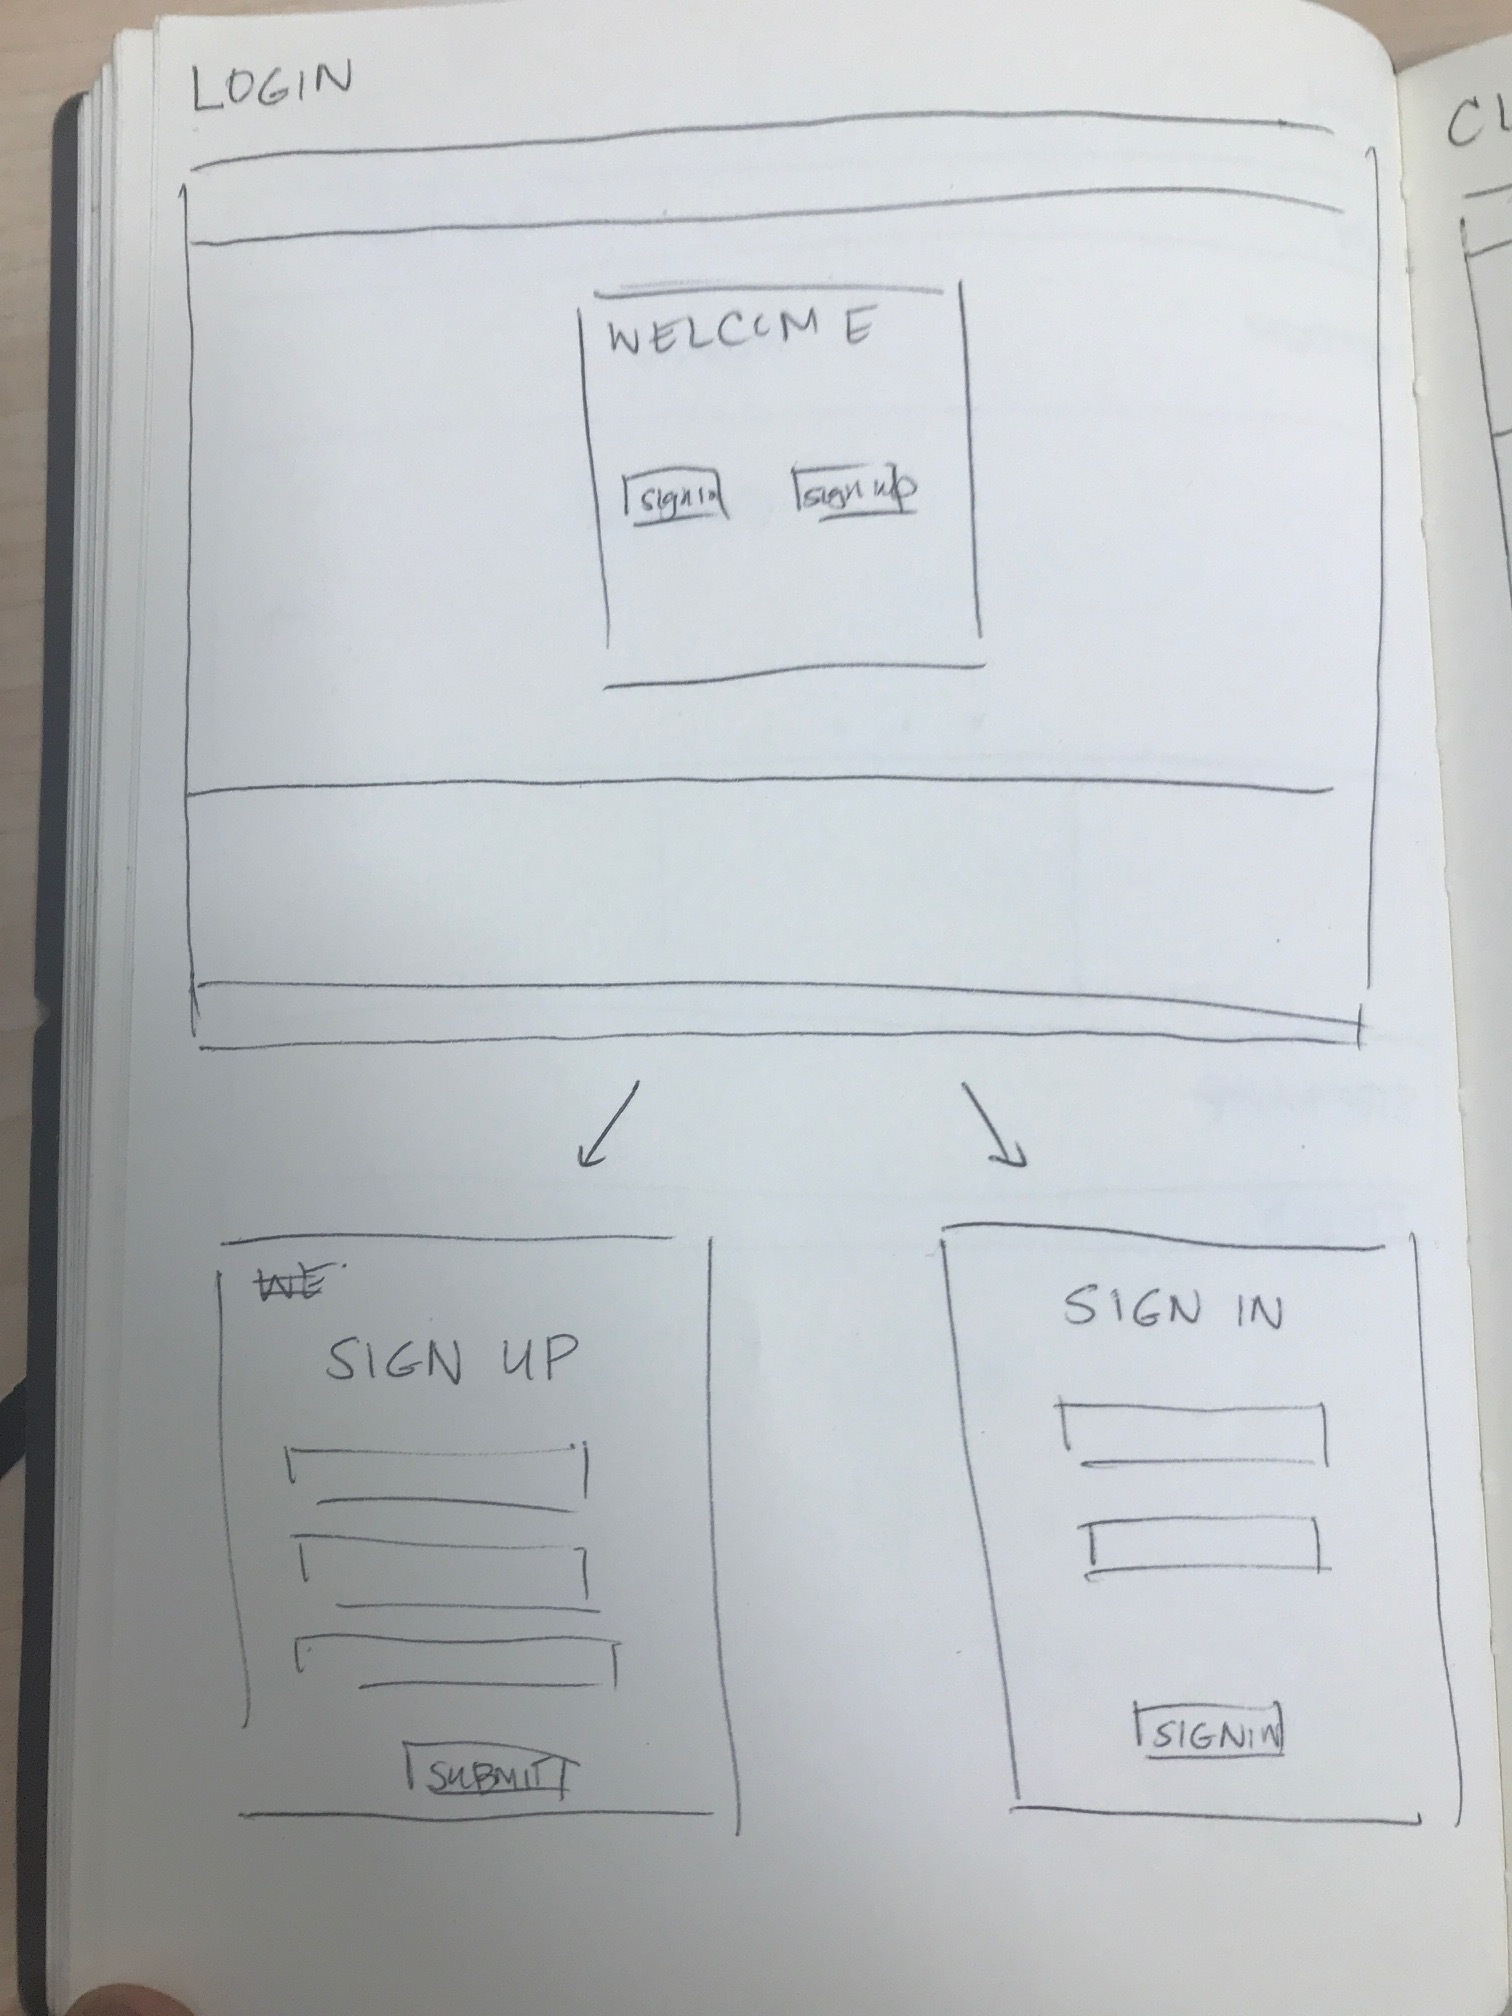 LOGIN
WELCOME
sign in
sign up
WE
SIGN UP
SUBMIT
SIGN IN
SIGNIN